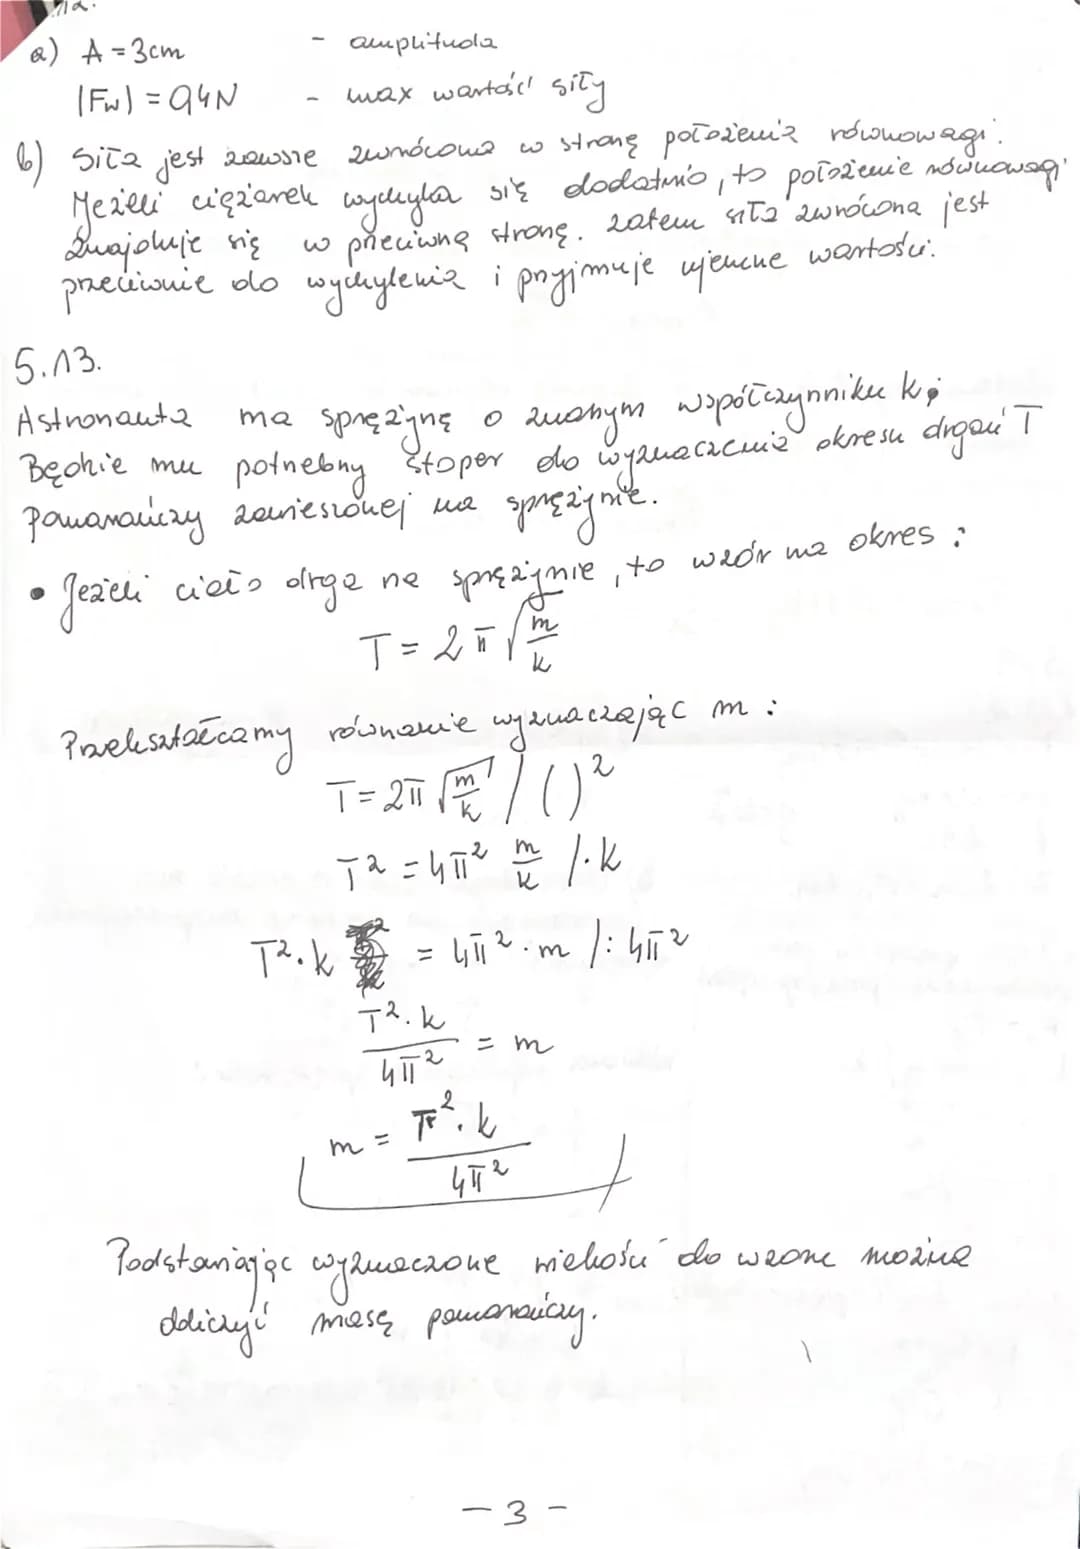 a) A = 3cm - amplituda
|Fw| = 0,4N - max wartość siły
b) Siła jest zawsze zwrócona w stronę położenia równowagi.
Jeżeli ciężarek wychyla się dodatnio, to położenie równowagi
znajduje się w przeciwną stronę. Zatem siła zwrócona jest
przeciwnie do wychylenia i przyjmuje ujemne wartości.
5.13.
Astronauta ma sprężynę o znanym współczynniku k;
Będzie mu potrzebny stoper do wyznaczenia okresu drgań T
pomarańczy zawieszonej na sprężynie.
• Jeżeli ciało drga na sprężynie, to wzór na okres:
T = 2π√(m/k)
Przekształcamy równanie wyznaczając m:
T = 2π√(m/k) / ( )²
T² = 4π² m/k /·k
T²·k = 4π²·m /: 4π²
T²·k / 4π² = m
m = T²·k / 4π²
Podstawiając wyznaczone wielkości do wzoru można
obliczyć masę pomarańczy.
- 3 -